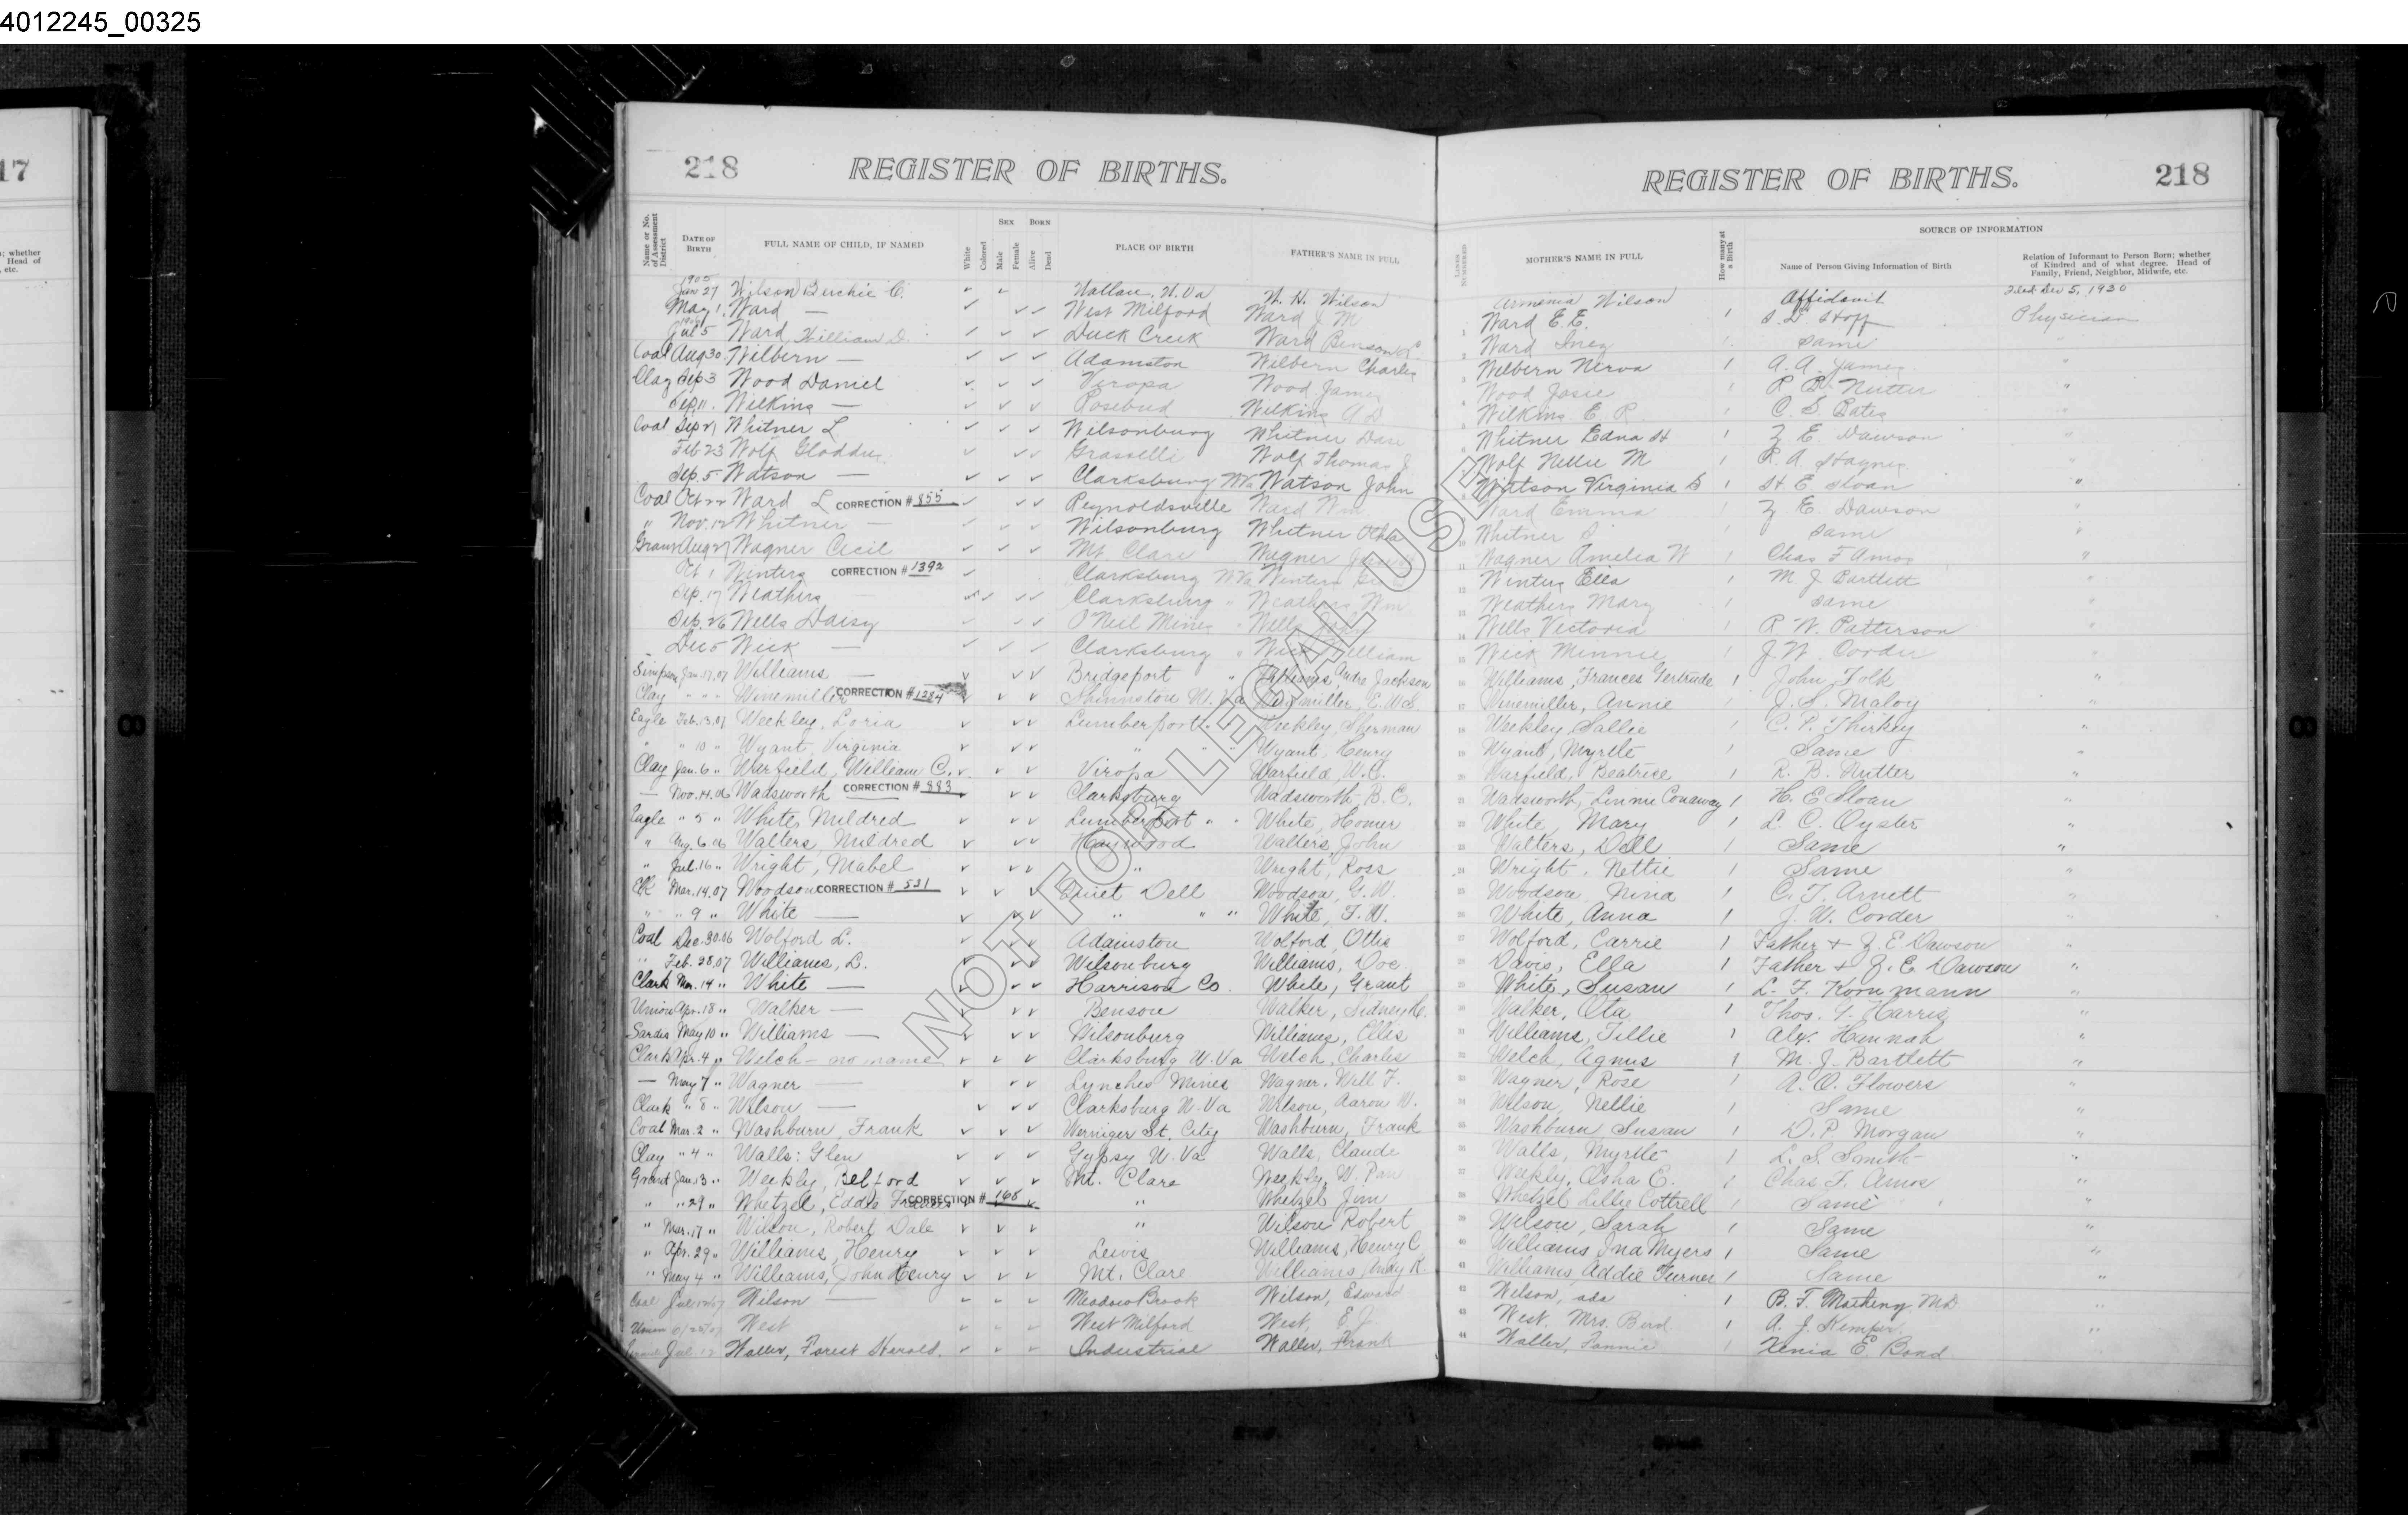 4012245_00325
17
; whether
Head of
, etc.
218 REGISTER OF BIRTHS.
REGISTER OF BIRTHS. 218
Name or No. of Assessment District
DATE OF BIRTH
FULL NAME OF CHILD, IF NAMED
White
Colored
SEX
Male
Female
BORN
Alive
Dead
PLACE OF BIRTH
FATHER'S NAME IN FULL
LINES NUMBERED
MOTHER'S NAME IN FULL
How many at a Birth
SOURCE OF INFORMATION
Name of Person Giving Information of Birth
Relation of Informant to Person Born; whether of Kindred and of what degree. Head of Family, Friend, Neighbor, Midwife, etc.
1905 Jan 27 Wilson C. Wallace, W. Va W. H. Wilson Wilson Affidavit Filed Dec 5, 1930
May 1 Ward — West Milford Ward J M Ward E. E. 1 Physician
Jul 5 Ward William D. Duck Creek Ward Ward Inez same "
Coal Aug 30 Wilbern — Adamston Wilbern Charles Wilbern Nerva 1 A. A. James
Clay Sep 3 Wood Daniel Viropa Wood James Wood Josie 1 R. B. Nutter "
Sep 11. Wilkins — Rosebud Wilkins A D Wilkins E. P. 1 C. S. Bates
Coal Sep 21 Whitner L Wilsonburg Whitner Dan Whitner Edna H 1 Z E. Dawson "
Feb 23 Wolf Grasselli Wolf Thomas J. Wolf Nellie M 1 R. A. Haynes
Sep. 5 Watson — Clarksburg WVa Watson John Watson Virginia B 1 H E Sloan "
Coal Oct 22 Ward L CORRECTION # 855 Reynoldsville Ward Wm Ward Emma Z E. Dawson
" Nov. 12 Whitner — Wilsonburg Whitner Whitner S same "
Grant Aug 27 Wagner Cecil Mt. Clare Wagner Wagner Amelia W 1 Chas F Amos "
Oct 1 Winters CORRECTION # 1392 Clarksburg WVa Winters Winters Ella 1 M. J. Bartlett "
Sep. 17 Weathers Clarksburg " Weathers Wm Weathers Mary 1 same "
Sep. 26 Wells Daisy O'Neil Mines " Wells John Wells Victoria 1 R W. Patterson "
Dec 5 Wick — Clarksburg " Wick William Wick Minnie J. W. Corder "
Simpson Jan. 17. 07 Williams — Bridgeport " Williams, Andre Jackson Williams, Frances Gertrude 1 John Folk "
Clay " " " Winemiller CORRECTION # 1284 Shinnston W. Va Winemiller, E. W. S. Winemiller, Annie 1 J. S. Maloy "
Eagle Feb. 13. 07 Weekley, Loria Lumberport. Weekley, Sherman Weekley, Sallie C. P. Thirkey "
" " 10 " Wyant, Virginia " " " Wyant, Henry Wyant, Myrtle 1 Same "
Clay Jan. 6 " Warfield, William C. Viropa Warfield, W. C. Warfield, Beatrice 1 R. B. Nutter "
— Nov. 14. 06 Wadsworth CORRECTION # 883 Clarksburg Wadsworth, B. C. Wadsworth, Linnie Conaway 1 H. E Sloan "
Eagle " 5 " White, Mildred Lumberport " " White, Homer White, Mary 1 L. C. Oyster "
" Aug. 6. 06 Walters, Mildred Haywood Walters, John Walters, Dell 1 Same "
" Jul. 16 " Wright, Mabel " Wright, Ross Wright, Nettie 1 Same "
Elk Mar. 14. 07 Woodson CORRECTION # 531 Quiet Dell Woodson, G. W. Woodson Nina 1 C. T. Arnett "
" " 9 " White — " " " White, F. W. White, Anna 1 J. W. Corder "
Coal Dec. 30. 06 Wolford L. Adamston Wolford, Ottis Wolford, Carrie 1 Father & Z. E. Dawson "
" Feb. 28. 07 Williams, L. Wilsonburg Williams, Doc Davis, Ella 1 Father & Z. E. Dawson "
Clark Mar. 14 " White — Harrison Co. White, Grant White, Susan 1 L. F. Kornmann "
Union Apr. 18 " Walker — Benson Walker, Sidney H. Walker, Ota 1 Thos. F. Harris "
Sardis May 10 " Williams — Wilsonburg Williams, Ellis Williams, Tillie 1 Alex. Hannah "
Clark Apr. 4 " Welch — no name Clarksburg W. Va Welch, Charles Welch, Agnus 1 M. J. Bartlett "
— May 7 " Wagner — Lynches Mines Wagner, Will F. Wagner, Rose 1 A. O. Flowers "
Clark " 8 " Wilson — Clarksburg W. Va Wilson, Aaron W. Wilson, Nellie 1 Same "
Coal Mar. 2 " Washburn, Frank Werniger St. City Washburn, Frank Washburn Susan 1 D. P. Morgan "
Clay " 4 " Walls: Glen Gypsy W. Va Walls, Claude Walls, Myrtle 1 L. S. Smith "
Grant Jan. 13 " Weekly, Belford Mt. Clare Weekly, W. Weekly, Osha E. 1 Chas. F. Amos "
" " 29 " Whetzel, Eddie CORRECTION # 168 " Whetzel Jim Whetzel Lillie Cottrell 1 Same "
" Mar. 17 " Wilson, Robert Dale " Wilson Robert Wilson, Sarah 1 Same "
" Apr. 29 " Williams, Henry Lewis Williams, Henry C. Williams Ina Myers 1 Same "
" May 4 " Williams, John Henry Mt. Clare Williams, Andy R. Williams, Addie Turner 1 Same "
Coal Wilson — Meadow Brook Wilson, Edward Wilson, Ada 1 B. F. Matheny MD "
Union West West Milford West, E. J. West, Mrs. Bird 1 A. J. Kemper "
Jul. 12 Waller, Forest Herold. Industrial Waller, Frank Waller, Fannie 1 Xenia E. Bond
NOT FOR LEGAL USE